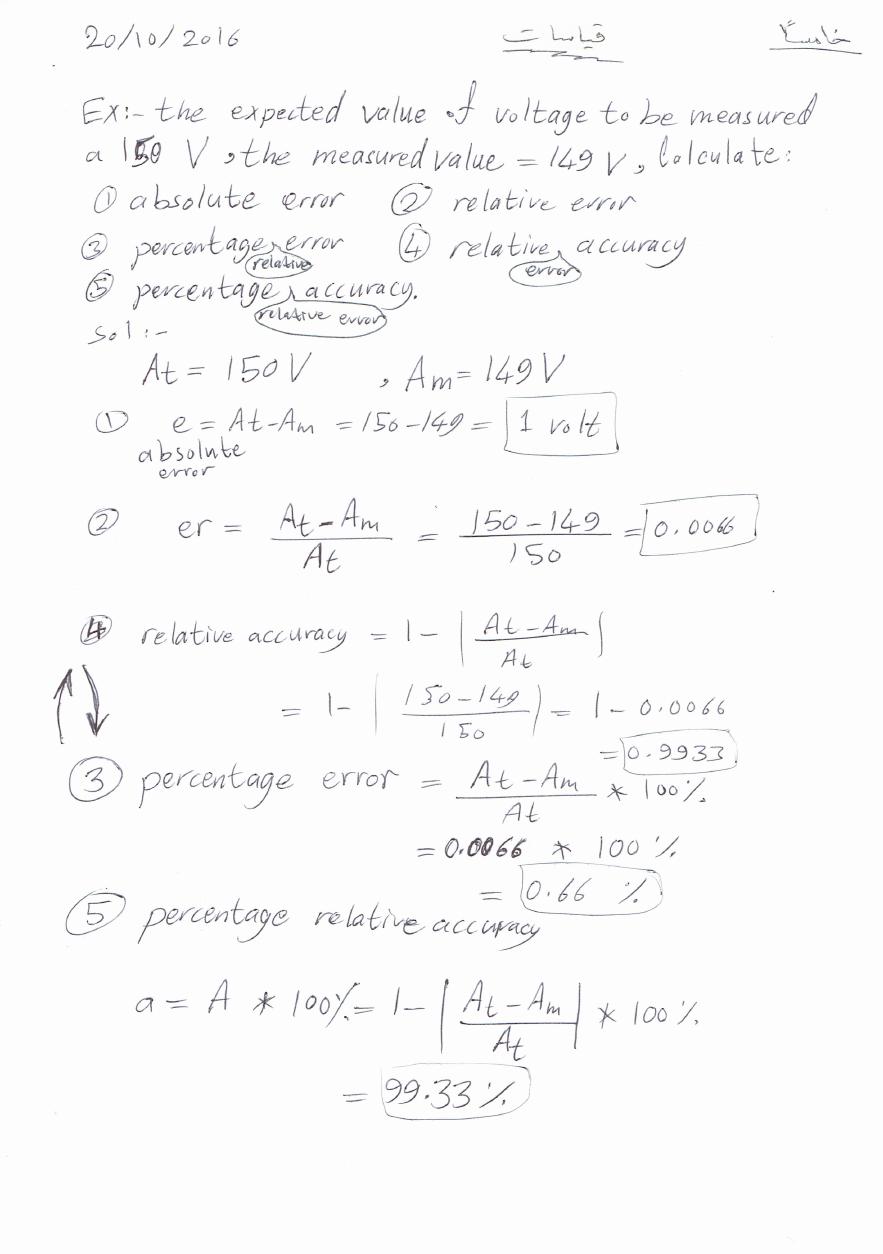 20/10/2016 قياسات خامسًا
Ex:- the expected value of voltage to be measured
a 150 V, the measured value = 149 V, Calculate:
① absolute error ② relative error
③ percentage error ④ relative accuracy
relative error
⑤ percentage accuracy.
relative error
Sol:-
At = 150 V , Am = 149 V
① e = At-Am = 150-149 = 1 volt
absolute
error
② er = At-Am/At = 150-149/150 = 0.0066
④ relative accuracy = 1 - |At-Am/At|
= 1- |150-149/150| = 1 - 0.0066
= 0.9933
③ percentage error = At-Am/At * 100%
= 0.0066 * 100 %
= 0.66 %
⑤ percentage relative accuracy
a = A * 100% = 1- |At-Am/At| * 100 %
= 99.33 %